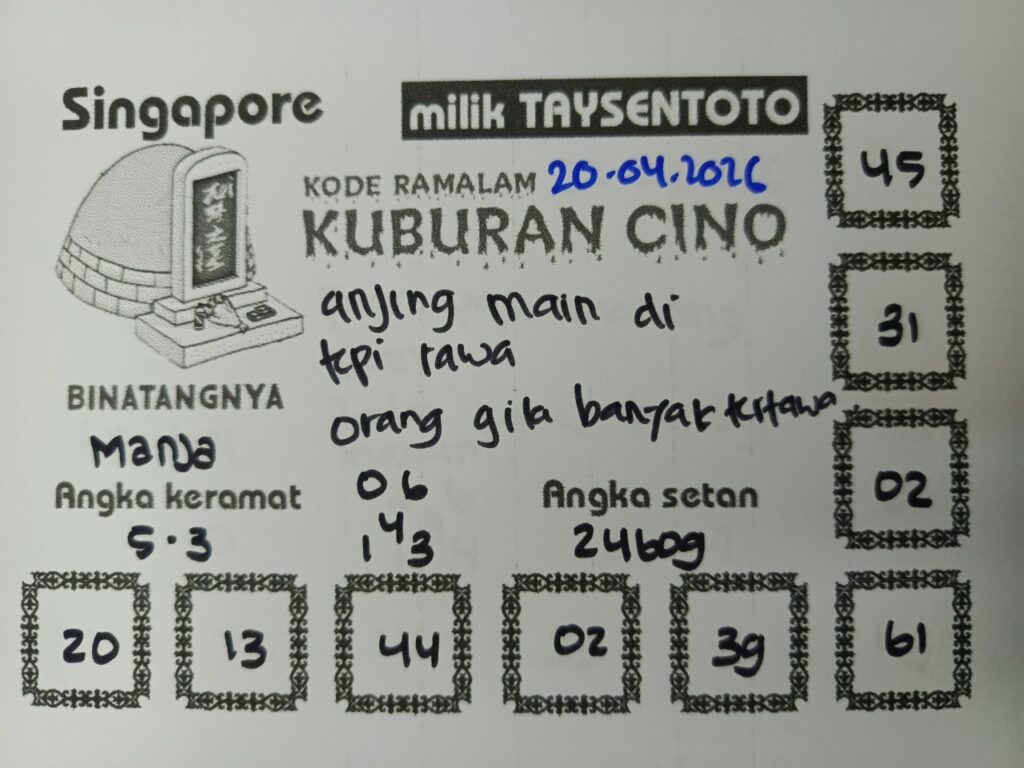 Singapore
milik TAYSENTOTO
KODE RAMALAM 20.04.2026
KUBURAN CINO
anjing main di
tepi rawa
orang gila banyak tertawa
BINATANGNYA
Manja
Angka keramat
5.3
06
4
1 3
Angka setan
24609
45
31
02
20
13
44
02
39
61